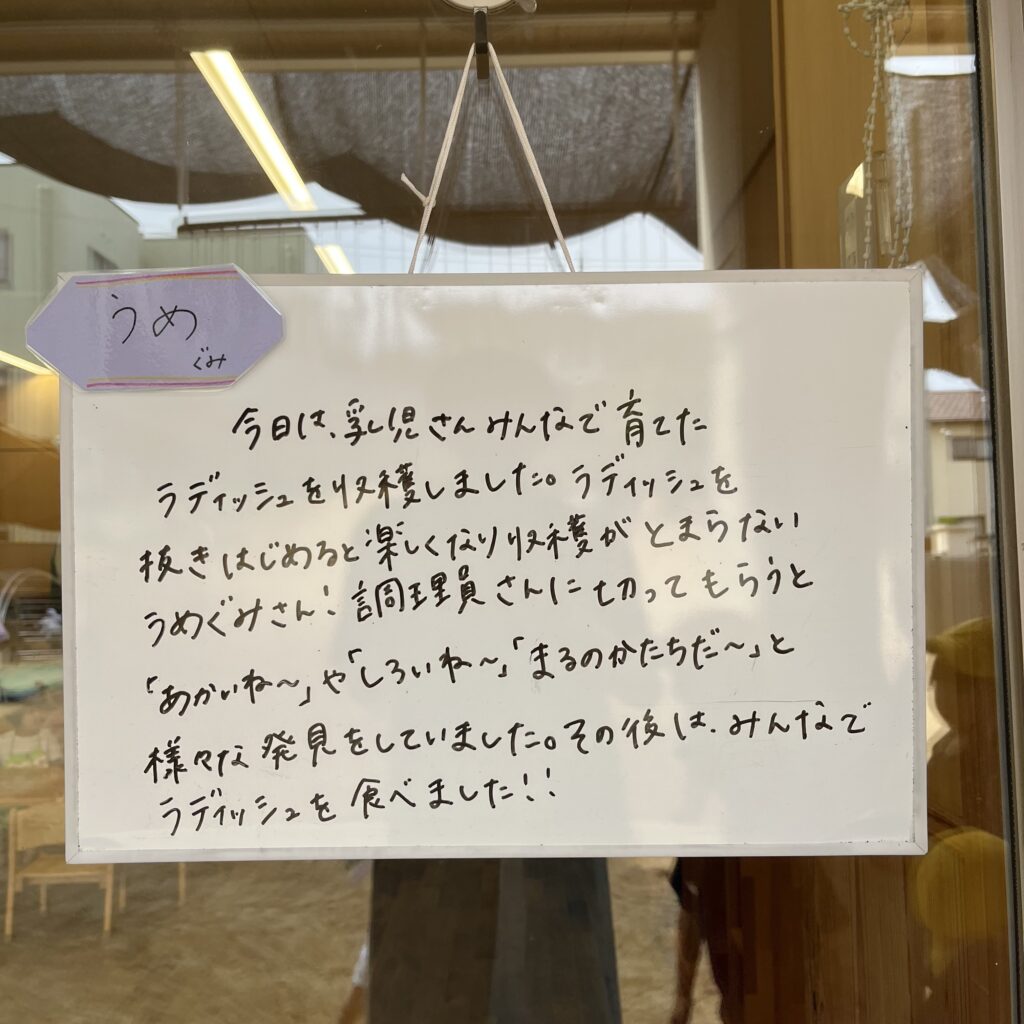 うめ
ぐみ
今日は、乳児さんみんなで育てた
ラディッシュを収穫しました。ラディッシュを
抜きはじめると楽しくなり収穫がとまらない
うめぐみさん!調理員さんに切ってもらうと
「あかいね〜」や「しろいね〜」「まるのかたちだ〜」と
様々な発見をしていました。その後は、みんなで
ラディッシュを食べました!!